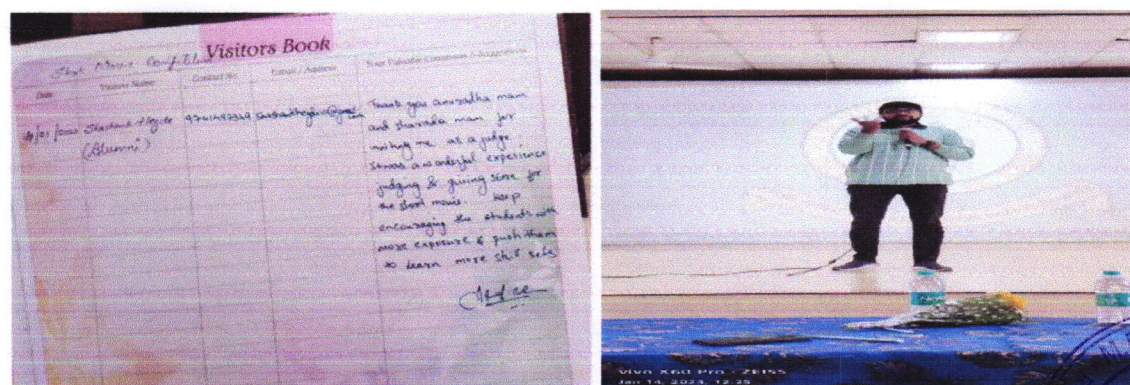 Visitors Book
Short Movie Competition
Date
Visitors Name
Contact No.
Email / Address
Your Valuable Comments & Suggestions
Shashank Hegde
(Alumni)
Thank you anuradha mam
and sharada mam for
inviting me as a judge.
It was a wonderful experience
judging & giving score for
the short movie. Keep
encouraging the students with
more exposure & push them
to learn more skill sets
vivo X60 Pro · ZEISS
Jan 14, 2023, 12:25